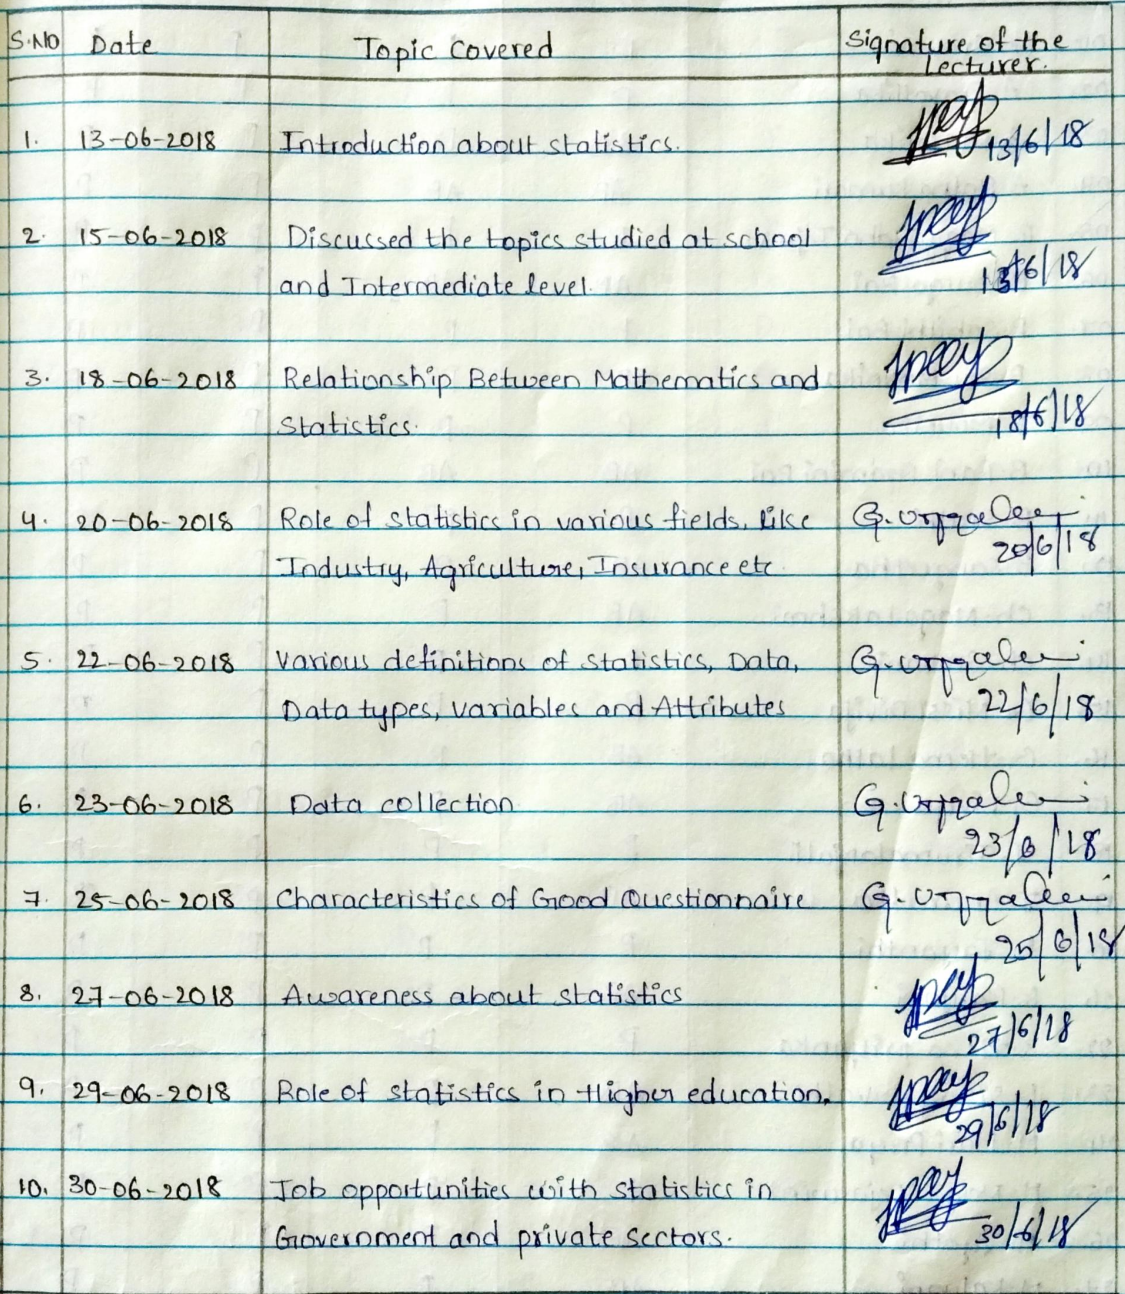 S.NO Date Topic Covered Signature of the
Lecturer.
1. 13-06-2018 Introduction about statistics. 13/6/18
2. 15-06-2018 Discussed the topics studied at school
and Intermediate level. /6/18
3. 18-06-2018 Relationship Between Mathematics and
Statistics. 18/6/18
4. 20-06-2018 Role of statistics in various fields, like G.
Industry, Agriculture, Insurance etc. 20/6/18
5. 22-06-2018 Various definitions of statistics, Data, G.
Data types, variables and Attributes 22/6/18
6. 23-06-2018 Data collection G.
23/6/18
7. 25-06-2018 Characteristics of Good Questionnaire G.
25/6/18
8. 27-06-2018 Awareness about statistics
27/6/18
9. 29-06-2018 Role of statistics in Higher education.
29/6/18
10. 30-06-2018 Job opportunities with statistics in
Government and private sectors. 30/6/18